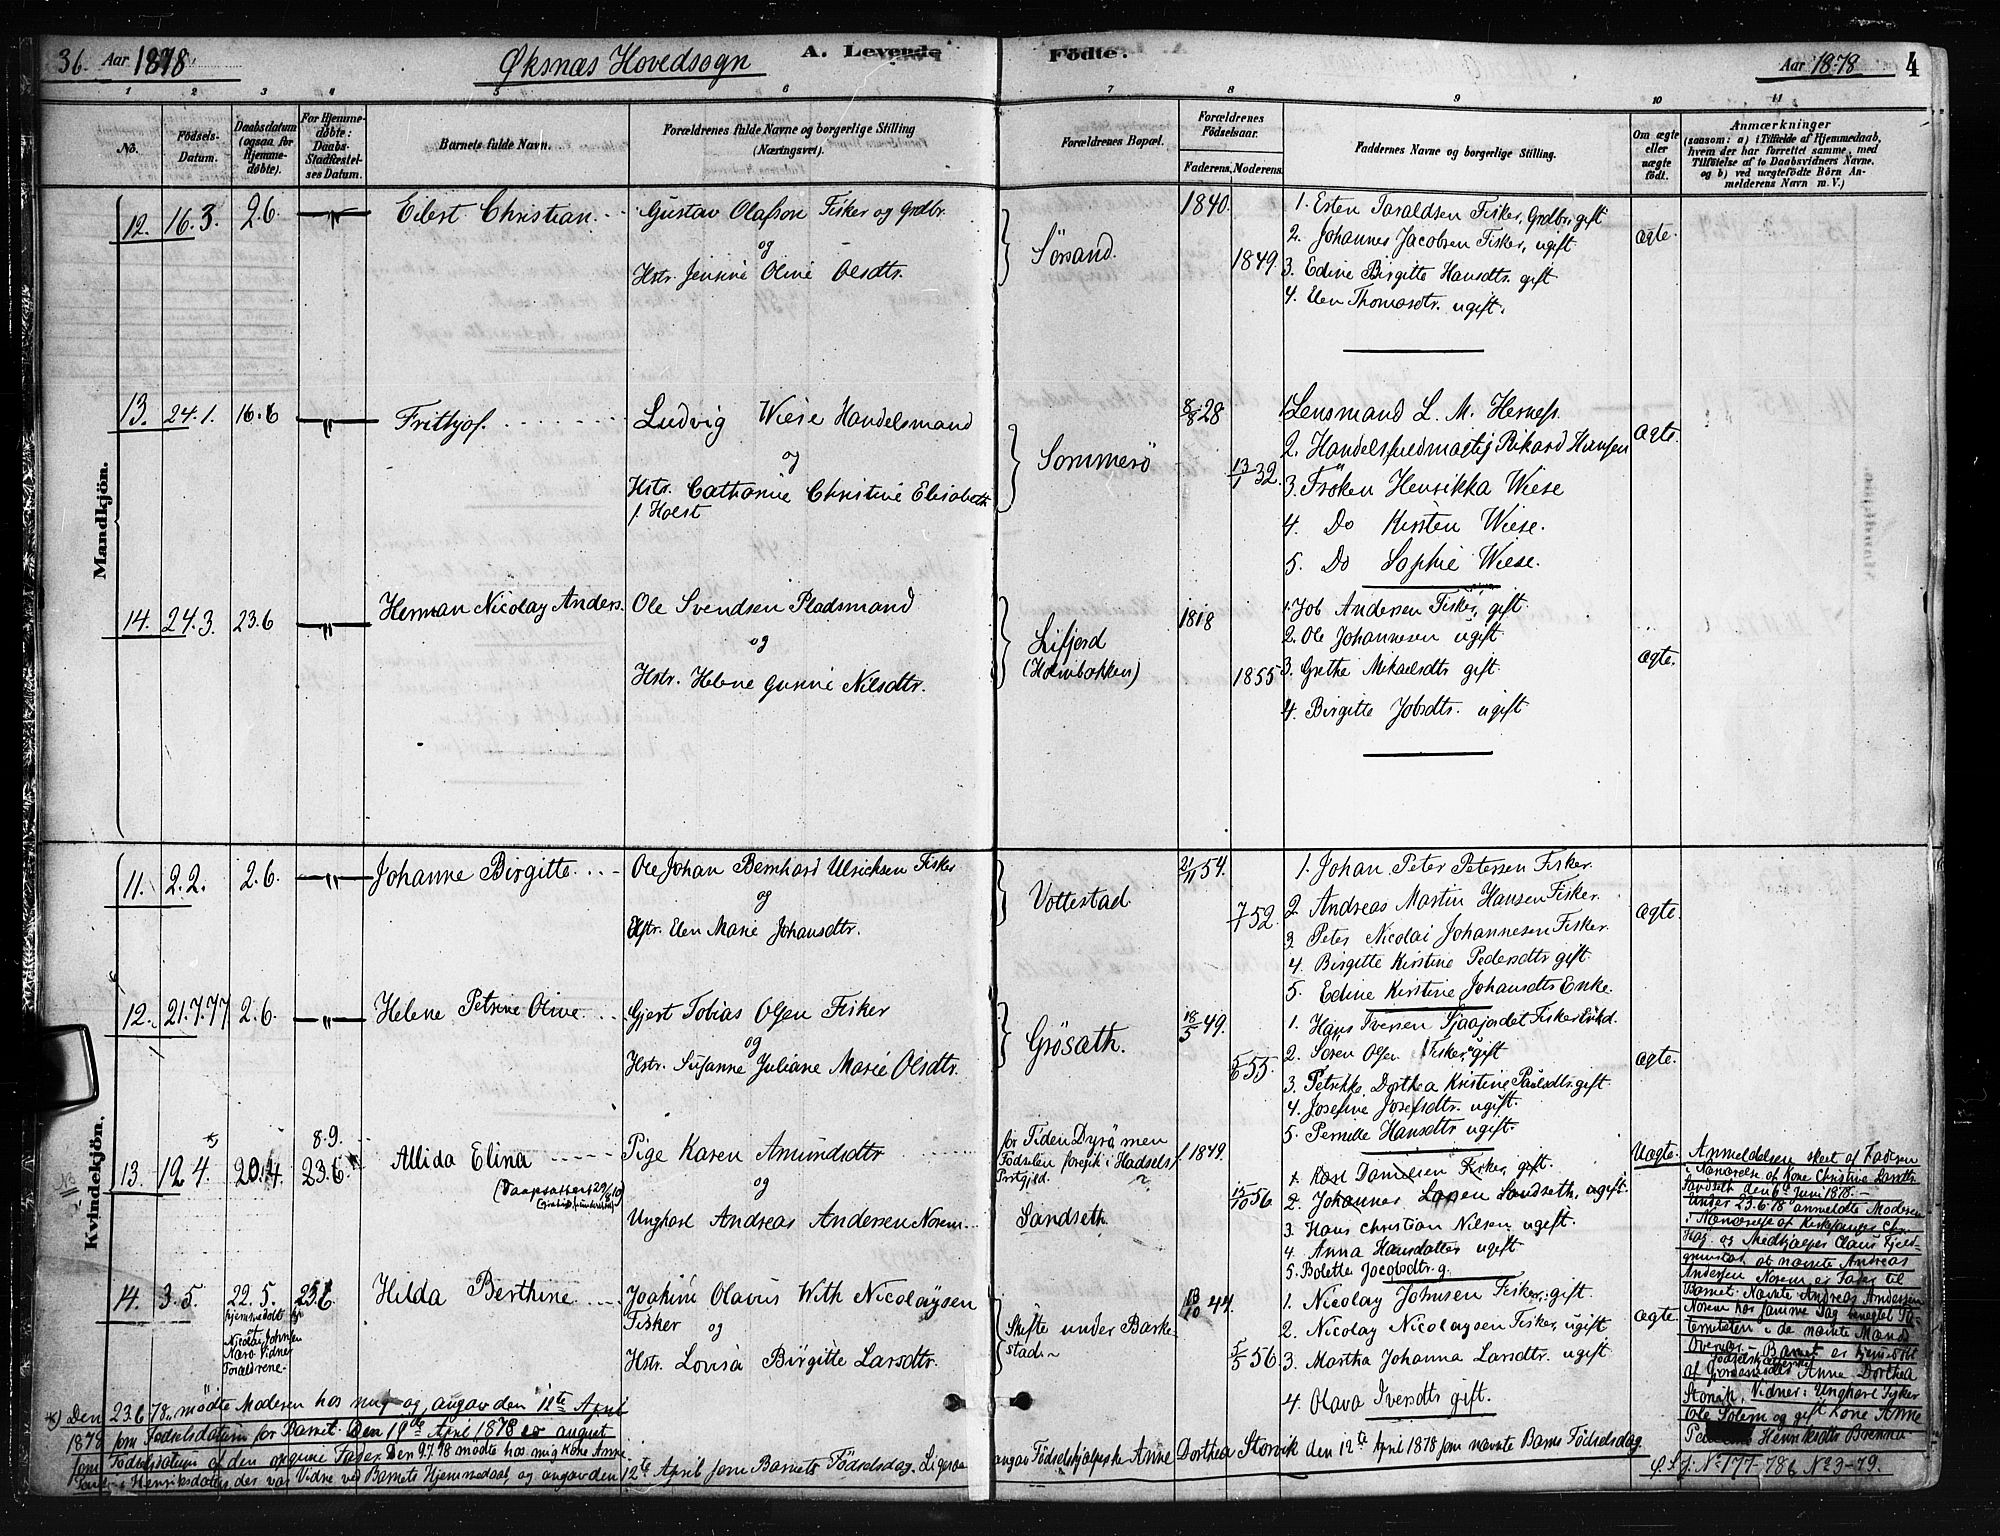 36. Aar 1878 Øksnæs Hovedsogn A. Levende
Födte. Aar 1878 4
1 2 3 4 5 6 7 8 9 10 11
No.
Födsels-
Datum.
Daabsdatum
(ogsaa for
Hjemme-
døbte).
For Hjemme-
døbte:
Daabs-
Stadfæstel-
ses Datum.
Barnets fulde Navn.
Forældrenes fulde Navne og borgerlige Stilling
(Næringsvei).
Forældrenes Bopæl.
Forældrenes
Födselsaar.
Faderens. Moderens.
Faddernes Navne og borgerlige Stilling.
Om ægte
eller
uægte
født.
Anmærkninger
(saasom: a) i Tilfælde af Hjemmedaab,
hvem der har forrettet samme, med
Tilføielse af to Daabsvidners Navne.
og b) ved uægtefödte Börn An-
melderens Navn m. V.)
Mandkjön.
12. 16.3. 2.6. —"— Eilert Christian
Gustav Olafson Fisker og Grdbr.
og
Hstr. Jensine Oline Olsdtr.
Sørsand.
1840.
1849.
1. Esten Taraldsen Fisker, Grdbr, gift
2. Johannes Jacobsen Fisker, ugift.
3. Edine Birgitte Hansdtr. gift
4. Elen Thomasdtr. ugift.
ægte.
13. 24.1. 16.6 —"— Frithjof.
Ludvig Wiese Handelsmand
og
Hstr. Cathorine Christine Elisabeth
f. Holst
Sommerö
8/8 28
13/1 32
1. Lensmand L. M. Herness.
2. Handelsfuldmægtig Rikard Hansen
3. Frøken Henrikka Wiese
4. Do Kirsten Wiese.
5. Do Sophie Wiese.
ægte.
14. 24.3. 23.6 —"— Herman Nicolay Anders.
Ole Svendsen Pladsmand
og
Hstr. Helene Gurine Nilsdtr.
Lifjord
(Holmbakken)
1818
1855
1. Job Andersen Fisker, gift.
2. Ole Johannesen ugift
3. Grethe Mikaelsdtr gift.
4. Birgitte Jobsdtr. ugift
ægte.
Kvindekjön.
11. 2.2. 2.6. —"— Johanne Birgitte.
Ole Johan Bernhard Ulricksen Fisker
og
Hstr. Elen Marie Johansdtr.
Vottestad
21/11 54.
7 52.
1. Johan Peter Petersen Fisker.
2. Andreas Martin Hansen Fisker.
3. Peter Nicolai Johannesen Fisker.
4. Birgitte Kirstine Pedersdtr gift.
5. Edine Kirstine Johansdtr Enke.
ægte.
12. 21.7.77 2.6. —"— Helene Petrine Oline
Gjert Tobias Olsen Fisker
og
Hstr. Susanne Juliane Marie Olsdtr.
Grösæth.
18/5 49.
5/6 55.
1. Hans Iversen Sjaajordet Fisker Enkd.
2. Sören Olsen Fisker, gift
3. Petrikke Dorthea Kristine Paulsdtr. gift.
4. Josefine Josefsdtr. ugift.
5. Pernille Hansdtr. ugift.
ægte.
13. 12 4 20.4. 8.9. 23.6 Allida Elina
Pige Karen Amundsdtr
og
Ungkarl Andreas Andersen Norem
for Tiden Dyrö men
Födselen foregik i Hadsels
Prstgjeld.
Sandseth.
1849.
15/10 56.
1. Rasl Danielsen Fisker, gift.
2. Johannes Larsen Sandseth, ugift.
3. Hans Christian Nilsen ugift.
4. Anna Hansdatter ugift
5. Bolette Jacobsdtr. g.
Uægte.
Anmeldelsen skeet af Faderen
i Nærværelse af Kone Christine Larsdtr
Sandseth den 6te Juni 1878.—
Under 23.6 78 anmeldte Moderen
i Nærværelse af Kirkesanger Chr.
Hag og Medhjælper Claus Fjeld-
grunstad at nævnte Andreas
Andersen Norem er Fader til
Barnet. Nævnte Andreas Andersen
Norem har samme Dag benegtet Pa-
terniteten i de nævnte Mænds
Overvær. — Barnet er hjemmedøbt
af Gjordemoder Anne Dorthea
Storvik. Vidner: Ungkarl Fisker
Ole Solem og gift Kone Anne
Henriksdtr Brenna
14. 3.5. 22.5. 23.6 Hilda Berthine
hjemmedøbt
af
Nicolai Johnsen
Næro Vidner
Forældrene.
Joakim Olavus With Nicolaysen
Fisker og
Hstr. Lovisa Birgitte Larsdtr.
Skifte under Barke-
stad
13/10 44.
5/5 56
1. Nicolay Johnsen Fisker, gift.
2. Nicolay Nicolaysen Fisker, ugift
3. Martha Johanna Larsdtr. ugift
4. Olava Iversdtr gift.
ægte.
*) Den 23.6 78. mødte Moderen hos mig og angav den 11te April
1878 som Födselsdatum for Barnet. Den 19de April 1878 er angivet
som Födselsdatum af den opgivne Fader. Den 9.7.78 mødte hos mig Kone Anne
Henriksdatter, der var Vidne ved Barnets Hjemmedaab, og angav den 12te April som Barnets Födselsdag. Ligesaa
angav Födselshjælperske Anne Dorthea Storvik den 12te April 1878 som nævnte Barns Födselsdag.
No. 177-78 & No 3-79.